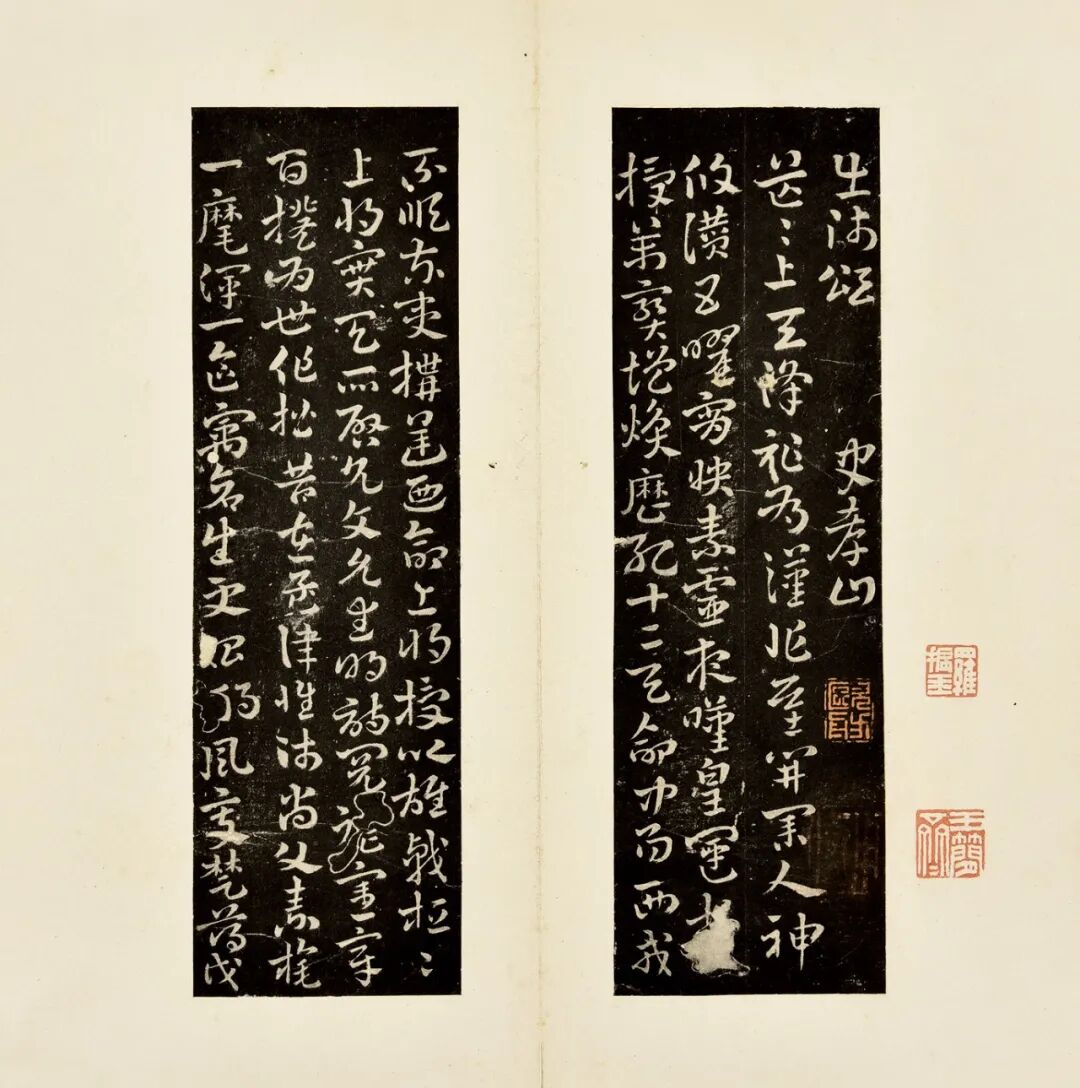 出師頌 史孝山
茫〻上天降祚為漢兆基開業人神
攸讚五曜霄映素靈夜嘆皇運
授萬寶增煥歷紀十二天命中易西戎
不順東夷構逆迺命上將授以雄戟桓〻
上將實天所啓允文允武明詩閱禮憲章
百揆為世作楷昔在孟津惟師尚父素旄
一麾渾一區寓蒼生更始朔風變楚薄伐
羅振玉
玉簡齋